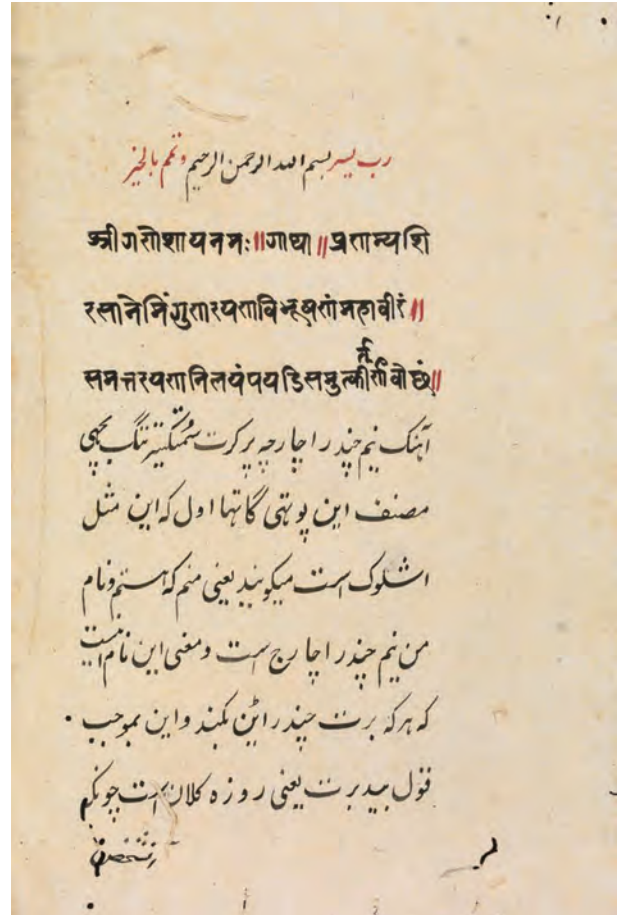 رب یسر بسم الله الرحمن الرحیم وتمم بالخیر
श्रीगणेशायनमः॥गाथा॥प्रणम्यशि
रसानेमिंगुणरयणविभूषणंमहावीरं॥
समत्तरयणनिलयंपयडिसमुत्कीर्णवोछं॥
آهنک نیم چندراچارجه پرکرت
مصنف این پوتهی گاتها اول که این مثل
اشلوک است میکویند یعنی منم که هستم و نام
من نیم چندراچارج است و معنی این نام اینست
که هر که برت چندراین بکند و این بموجب
قول بید برت یعنی روزه کلان است چونکه